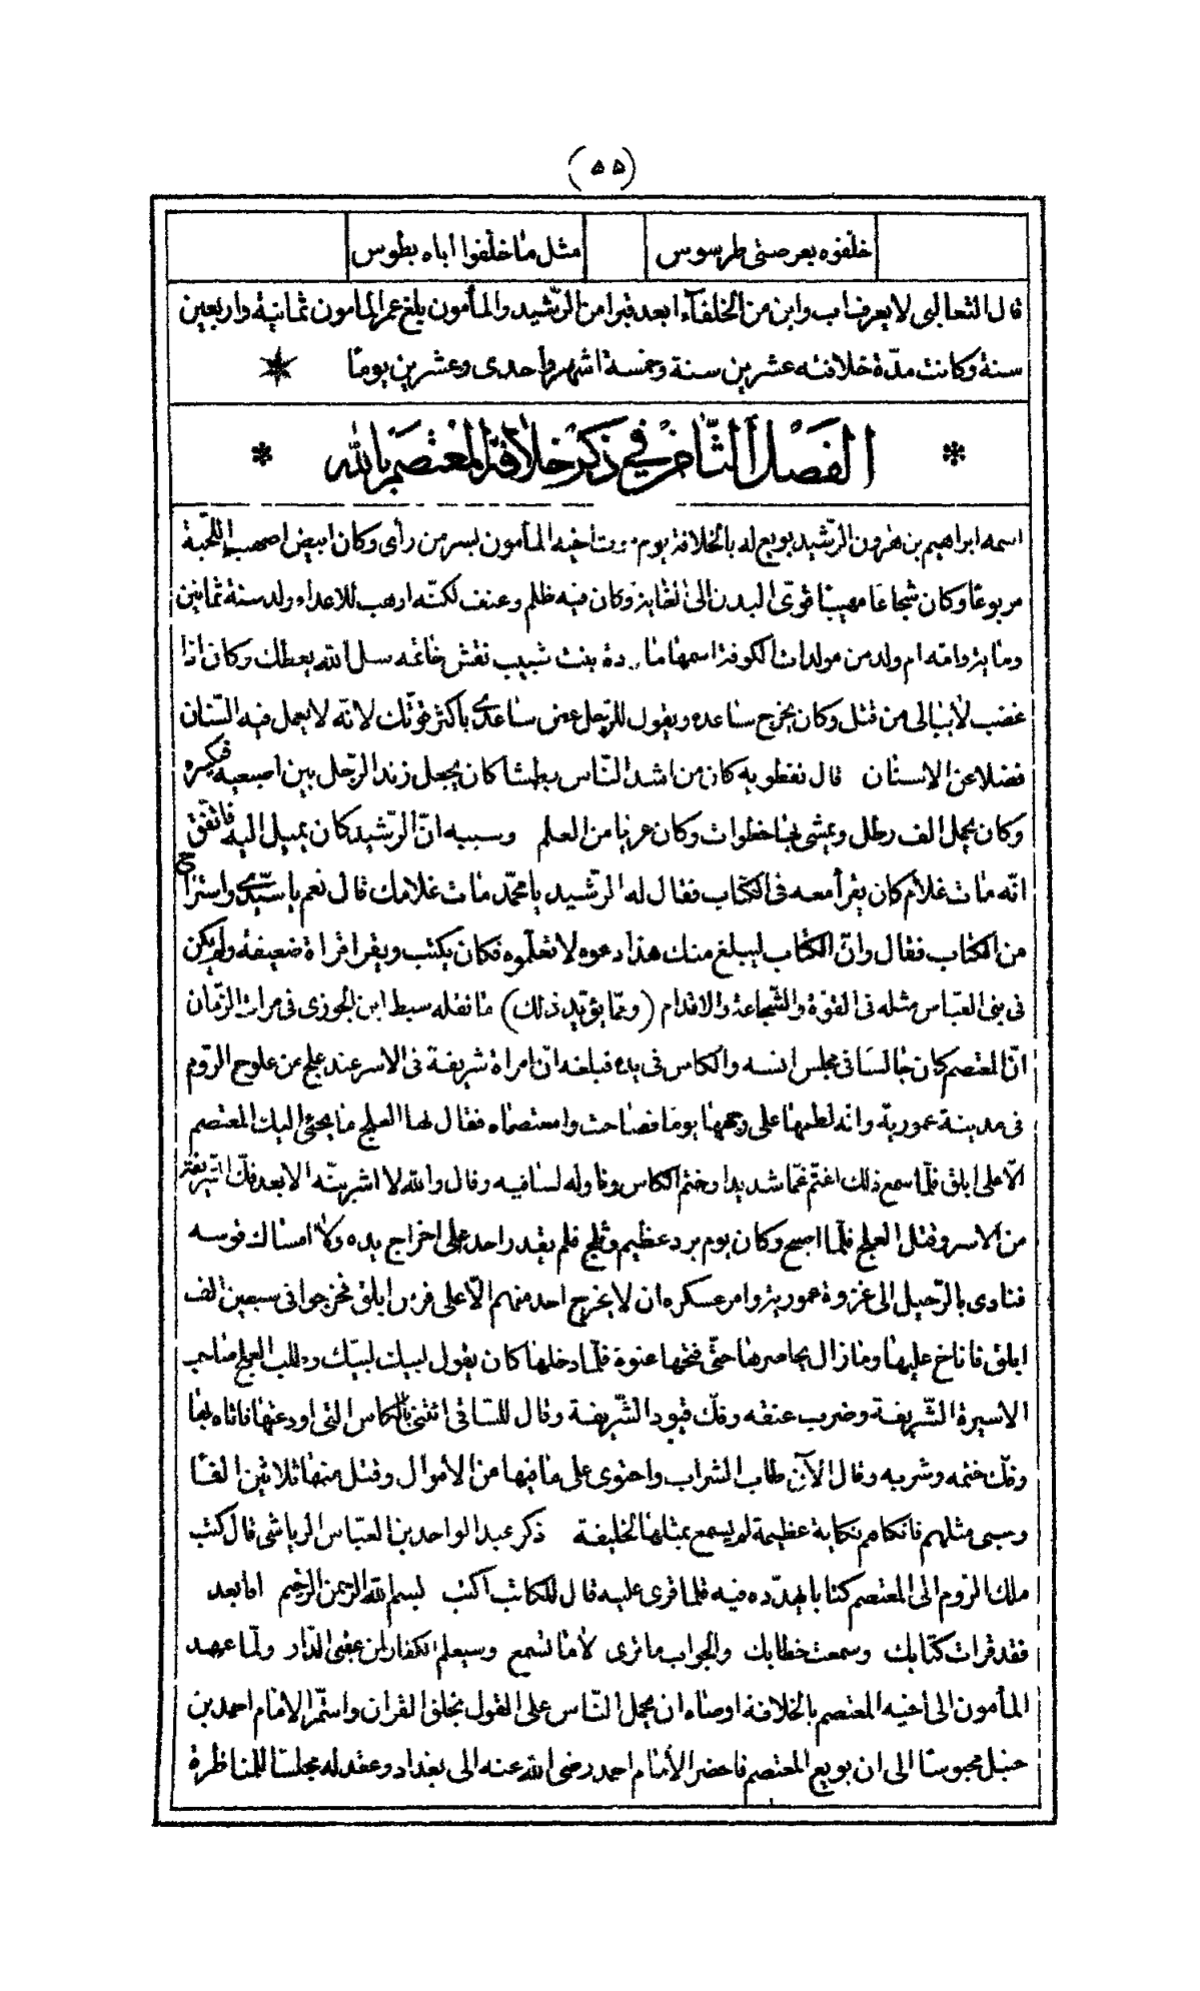 (٥٥)
خلّفوه بعرصتى طرسوس    مثل ما خلّفوا اباه بطوس
قال الثعالبى لا يعرف اب وابن من الخلفآء ابعد قبرا من الرّشيد والمأمون بلغ عمر المامون ثمانية واربعين
سنة وكانت مدّة خلافته عشرين سنة وخمسة اشهر واحدى وعشرين يومًا
الفصل الثّامن في ذكر خلافة المعتصم بالله
اسمه ابراهيم بن هرون الرّشيد بويع له بالخلافة يوم موت اخيه المأمون بسر من رأى وكان ابيض اصهب اللّحية
مربوعًا وكان شجاعًا مهيبًا قوىّ البدن الى الغاية وكان فيه ظلم وعنف لكنّه ارهب للاعداء ولد سنة ثمانين
ومأية وامّه ام ولد من مولدات الكوفة اسمها ماردة بنت شبيب نقش خاتمه سل الله يعطك وكان اذا
غضب لا يبالى من قتل وكان يخرج ساعده ويقول للرّجل عض ساعدى باكثر قوّتك لانّه لا يعمل فيه السّنان
فضلا عن الاسنان قال نفطويه كان من اشد النّاس بطشا كان يجعل زند الرّجل بين اصبعيه فيكسره
وكان يحمل الف رطل ويمشى بها خطوات وكان عريا من العلم وسببه انّ الرّشيد كان يميل اليه فاتّفق
انّه مات غلام كان يقرأ معه فى الكتاب فقال له الرّشيد يا محمّد مات غلامك قال نعم يا سيّدى واستراح
من الكتاب فقال وانّ الكتاب ليبلغ منك هذا دعوه لا تعلّموه فكان يكتب ويقرا قراة ضعيفة ولم يكن
فى بنى العبّاس مثله فى القوّة والشّجاعة والاقدام (وممّا يؤيّد ذلك) ما نقله سبط ابن الجوزى فى مرات الزّمان
انّ المعتصم كان جالسًا فى مجلس انسه والكاس فى يده فبلغه انّ امراة شريفة فى الاسر عند علج من علوج الرّوم
فى مدينة عمورية وانه لطمها على وجهها يوما فصاحت وا معتصماه فقال لها العلج ما يجئ اليك المعتصم
الّا على ابلق فلمّا سمع ذلك اغتم غمّا شديدا وختم الكاس وناوله لساقيه وقال والله لا اشربتّه الا بعد فكّ الشّريفة
من الاسر وقتل العلج فلمّا اصبح وكان يوم برد عظيم وثلج فلم يقدر احد على اخراج يده ولا امساك قوسه
فنادى بالرّحيل الى غزوة عمورية وامر عسكره ان لا يخرج احد منهم الّا على فرس ابلق فخرجوا فى سبعين الف
ابلق فاناخ عليها وما زال يحاصرها حتّى فتحها عنوة فلمّا دخلها كان يقول لبيك لبيّك وطلب العلج صاحب
الاسيرة الشّريفة وضرب عنقه وفكّ قيود الشّريفة وقال للسّاقى ائتنى بالكاس التى اودعتها فاتاه بها
وفكّ ختمه وشربه وقال الآن طاب الشراب واحتوى على ما فيها من الاموال وقتل منها ثلاثين الفًا
وسبى مثلهم فانكاهم نكاية عظيمة لم يسمع بمثلها لخليفة ذكر عبد الواحد بن العبّاس الرياشى قال كتب
ملك الرّوم الى المعتصم كتابا يهدّده فيه فلما قرى عليه قال للكاتب اكتب بسم الله الرّحمن الرّحيم اما بعد
فقد قرات كتابك وسمعت خطابك والجواب ما ترى لا ما تسمع وسيعلم الكفار لمن عقبى الدّار ولمّا عهد
المأمون الى أخيه المعتصم بالخلافة اوصاه ان يحمل النّاس على القول بخلق القران واستمّر الامام احمد بن
حنبل محبوسًا الى ان بويع المعتصم فاحضر الأمام احمد رضى الله عنه الى بغداد وعقد له مجلسًا للمناظرة